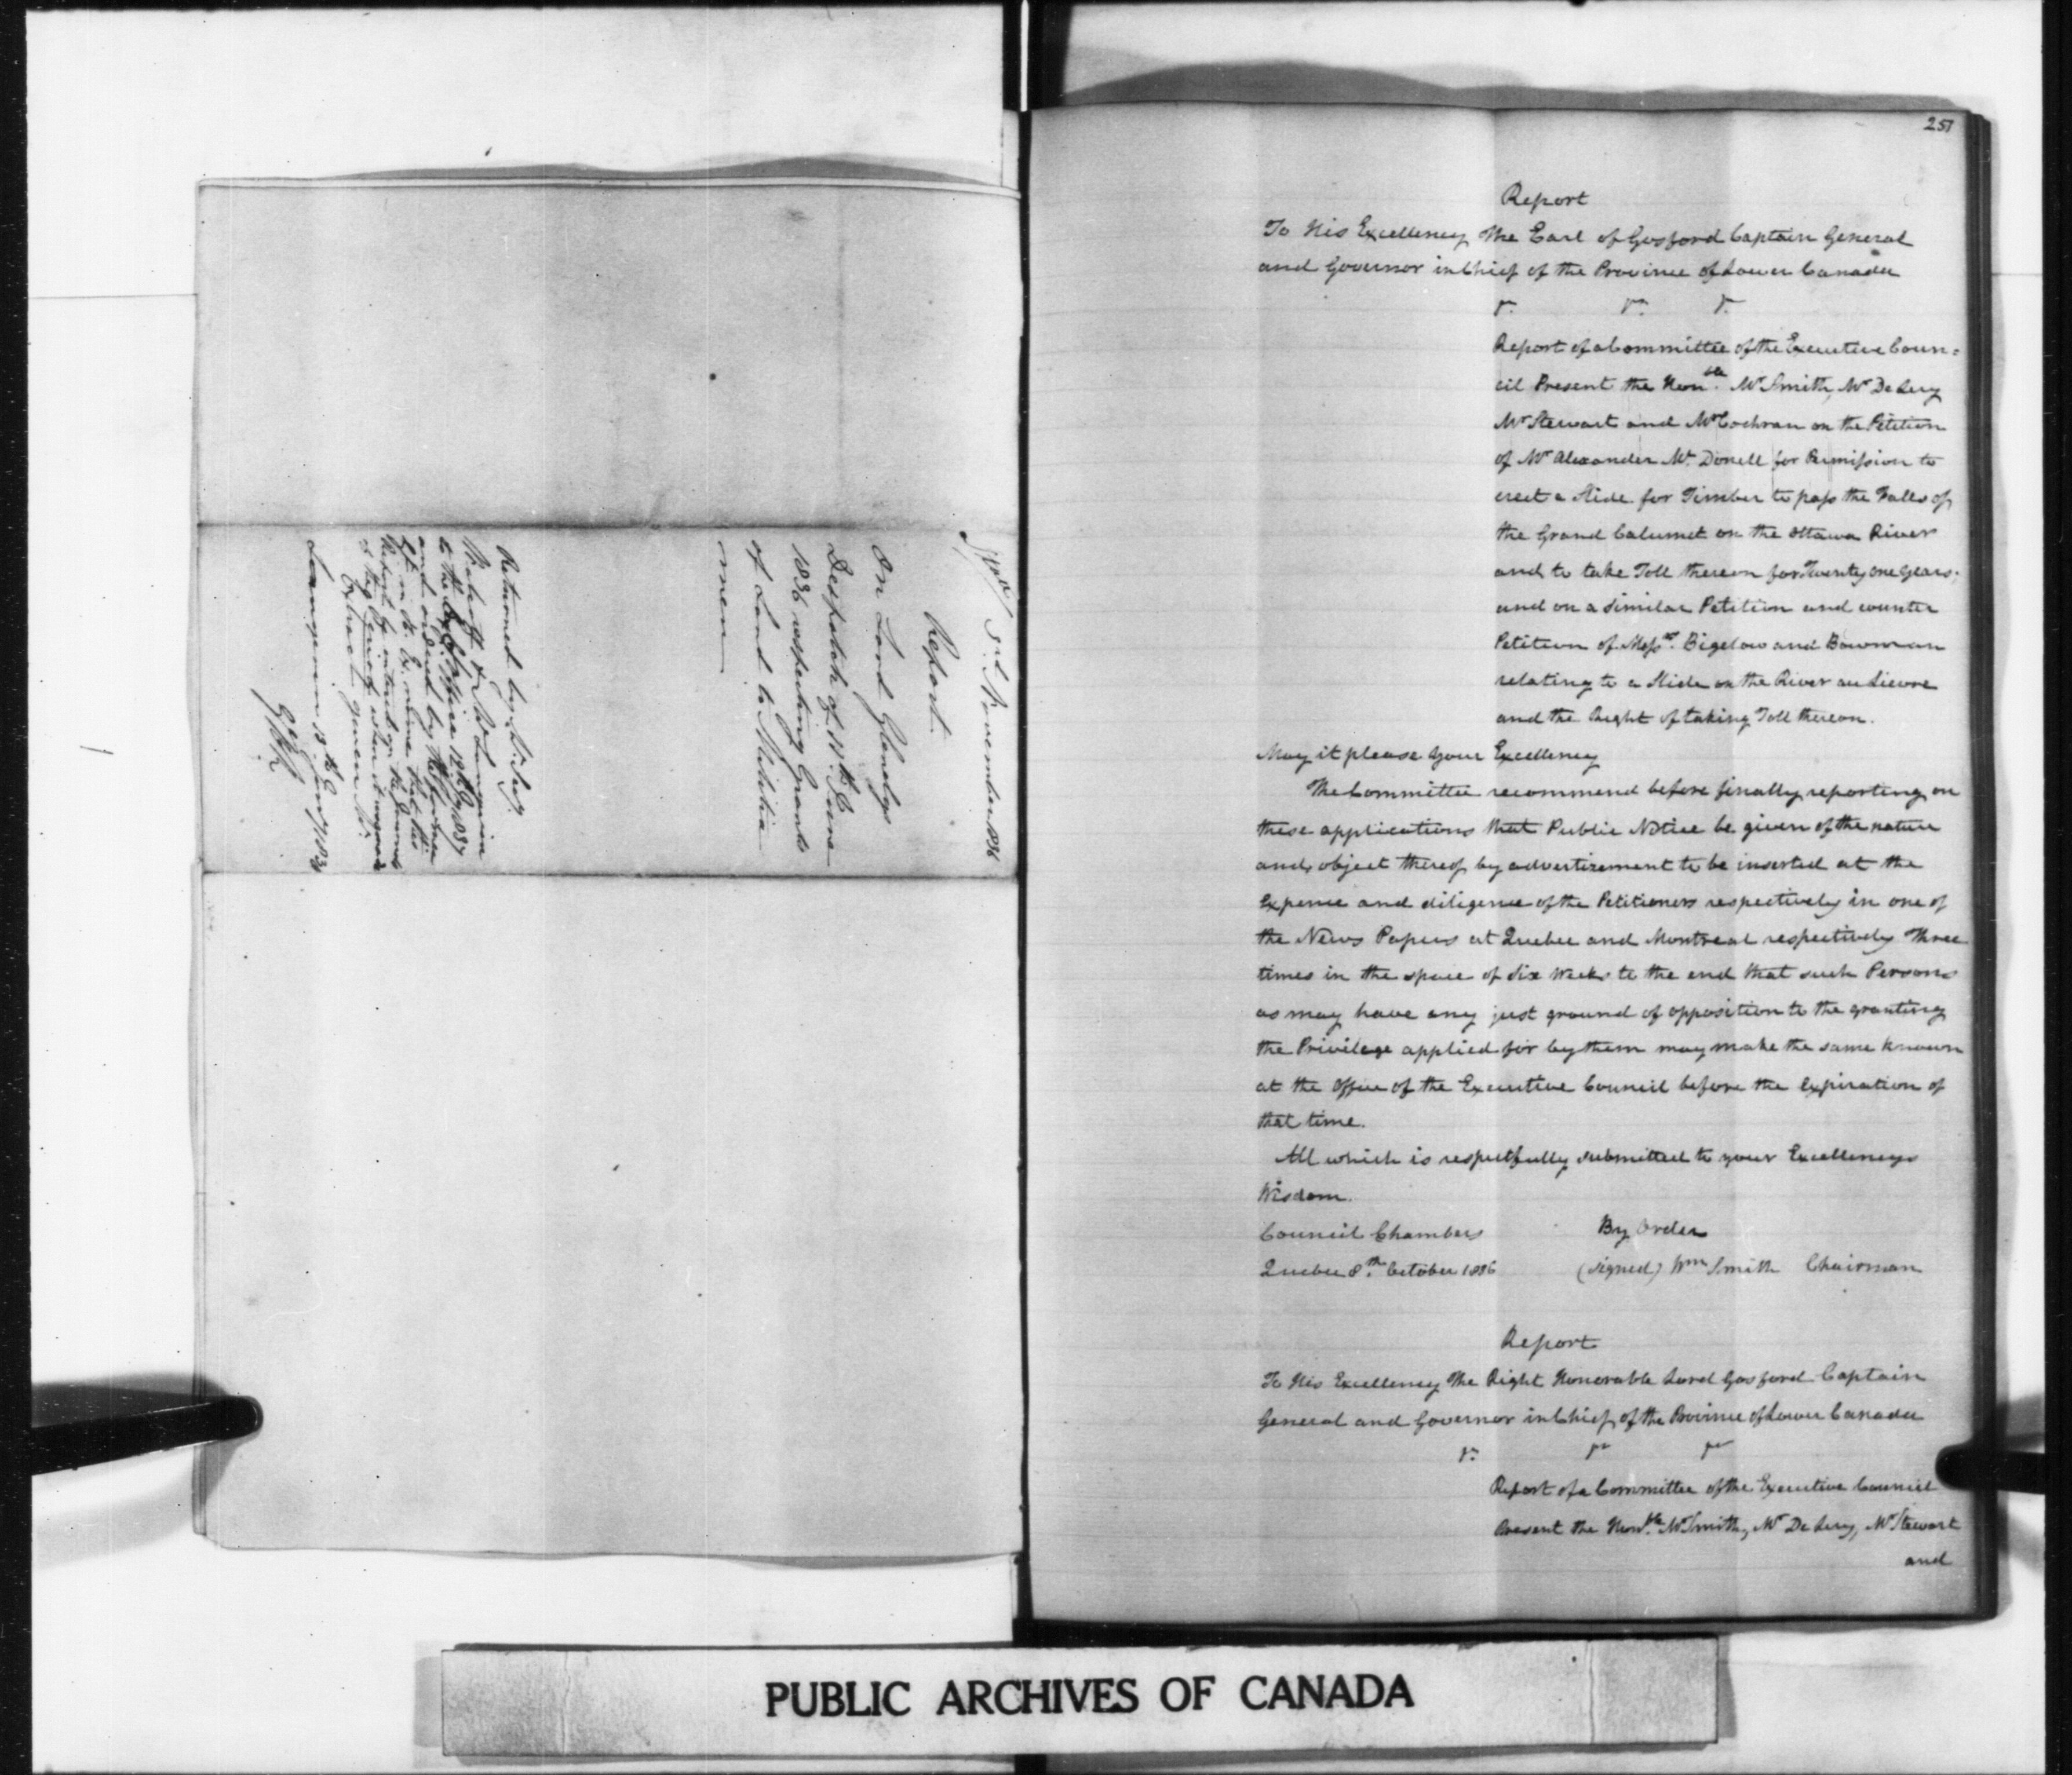 3rd November 1836
Report
On Lord Glenelgs
Despatch of 11th June
1836 respecting Grants
of Land to Militia
men
Returned by
to the Office 12th 1837
and ordered by the former
251
Report
To His Excellency The Earl of Gosford Captain General
and Governor in Chief of the Province of Lower Canada
Report of a Committee of the Executive Coun=
cil Present the Honble. Mr Smith, Mr De Lery
Mr Stewart and Mr Cochran on the Petition
of Mr Alexander Mc Donell for Permission to
erect a Slide for Timber to pass the Falls of
the Grand Calumet on the Ottawa River
and to take Toll thereon for Twenty one Years;
and on a similar Petition and counter
Petition of Messrs. Bigelow and Bowman
relating to a Slide on the River au Lievre
and the Right of taking Toll thereon.
May it please Your Excellency
The Committee recommend before finally reporting on
these applications that Public Notice be given of the nature
and object thereof by advertizement to be inserted at the
expence and diligence of the Petitioners respectively in one of
the News Papers at Quebec and Montreal respectively Three
times in the space of Six Weeks to the end that such Persons
as may have any just ground of opposition to the granting
the Privilege applied for by them may make the same known
at the Office of the Executive Council before the expiration of
that time.
All which is respectfully submitted to your Excellencys
Wisdom.
Council Chambers
By Order
Quebec 8th. October 1836
(signed) Wm Smith Chairman
Report
To His Excellency The Right Honorable Lord Gosford Captain
General and Governor in Chief of the Province of Lower Canada
Report of a Committee of the Executive Council
Present the Honble. Mr Smith, Mr De Lery, Mr Stewart
and
PUBLIC ARCHIVES OF CANADA